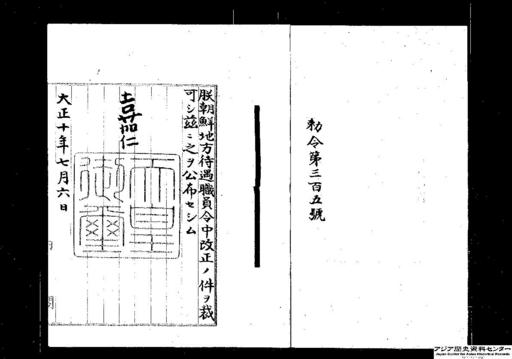 勅令第三百五號
朕朝鮮地方待遇職員令中改正ノ件ヲ裁
可シ茲ニ之ヲ公布セシム
嘉仁
天皇
御璽
大正十年七月六日
アジア歴史資料センター
Japan Center for Asian Historical Records